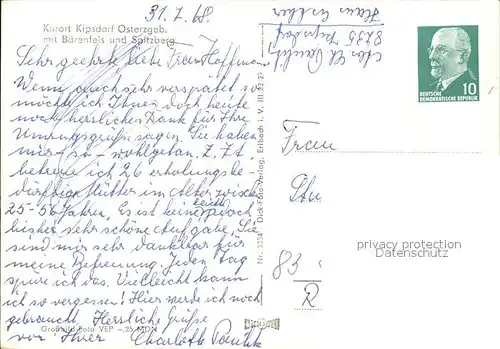 31.7.68.
Kurort Kipsdorf Osterzgeb.
mit Bärenfels und Spitzberg
Sehr geehrte liebe Frau Hoffmann
Wenn auch sehr verspätet so
möchte ich Ihnen doch heute
noch herzlichen Dank für Ihre
sagen. Sie haben
mir so wohlgetan. Z. Zt.
betreue ich 26 erholungsbe-
dürftige Mütter im Alter zwischen
25-56 Jahren. Es ist keine leicht jedoch
bisher sehr schöne Aufgabe, Sie
sind mir sehr dankbar für
meine Betreuung. Jeden Tag
spüre ich das. Vielleicht kann
ich so vergessen! Hier werde ich noch
gebraucht. Herzliche Grüße
von Ihrer Charlotte
Großbild-Foto VEP -.25 MDN
Nr. 3354 Dick-Foto-Verlag, Erlbach i. V. III 23 27
8235 Kipsdorf
10
DEUTSCHE
DEMOKRATISCHE REPUBLIK
Frau
83
R
privacy protection
Datenschutz